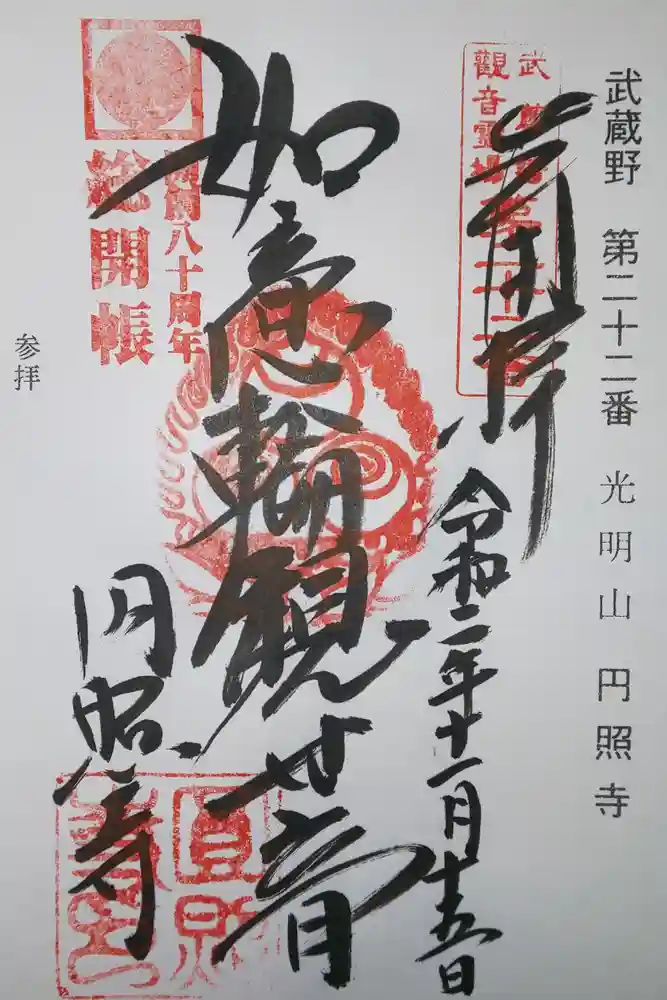 武蔵野 第二十二番 光明山 円照寺
武蔵野
觀音霊場
第二十二番
令和二年十一月十五日
如意輪観世音
開創八十周年
総開帳
円照寺
参拝